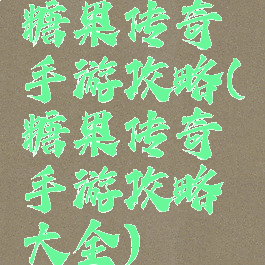 糖果传奇
手游攻略(
糖果传奇
手游攻略
大全)